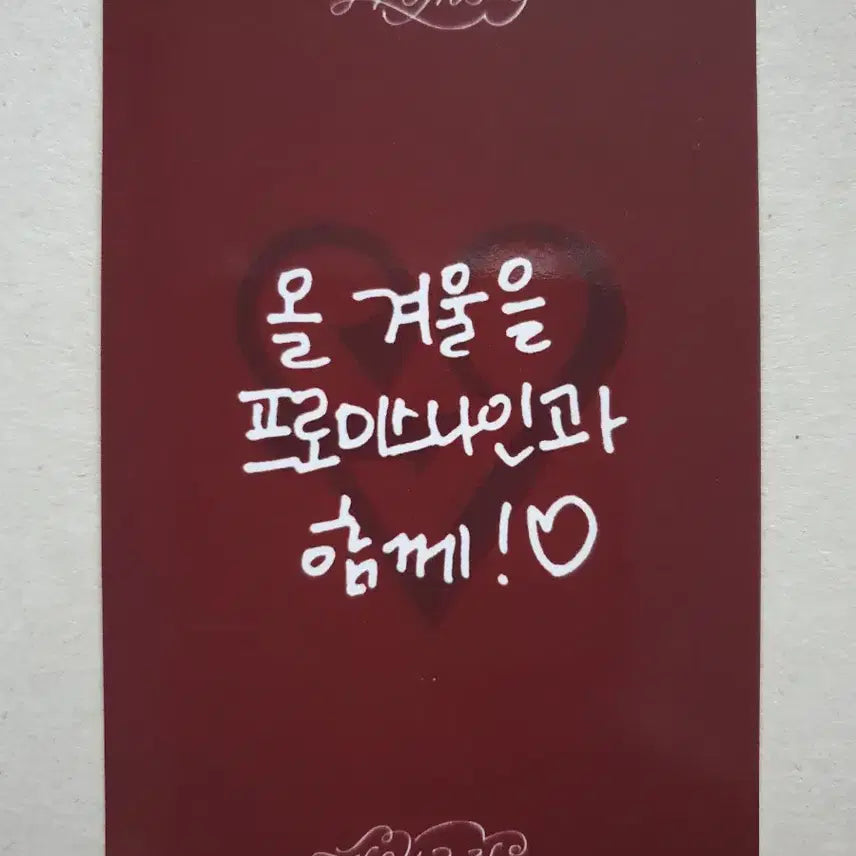 올 겨울을
프로미스나인과
함께!♡